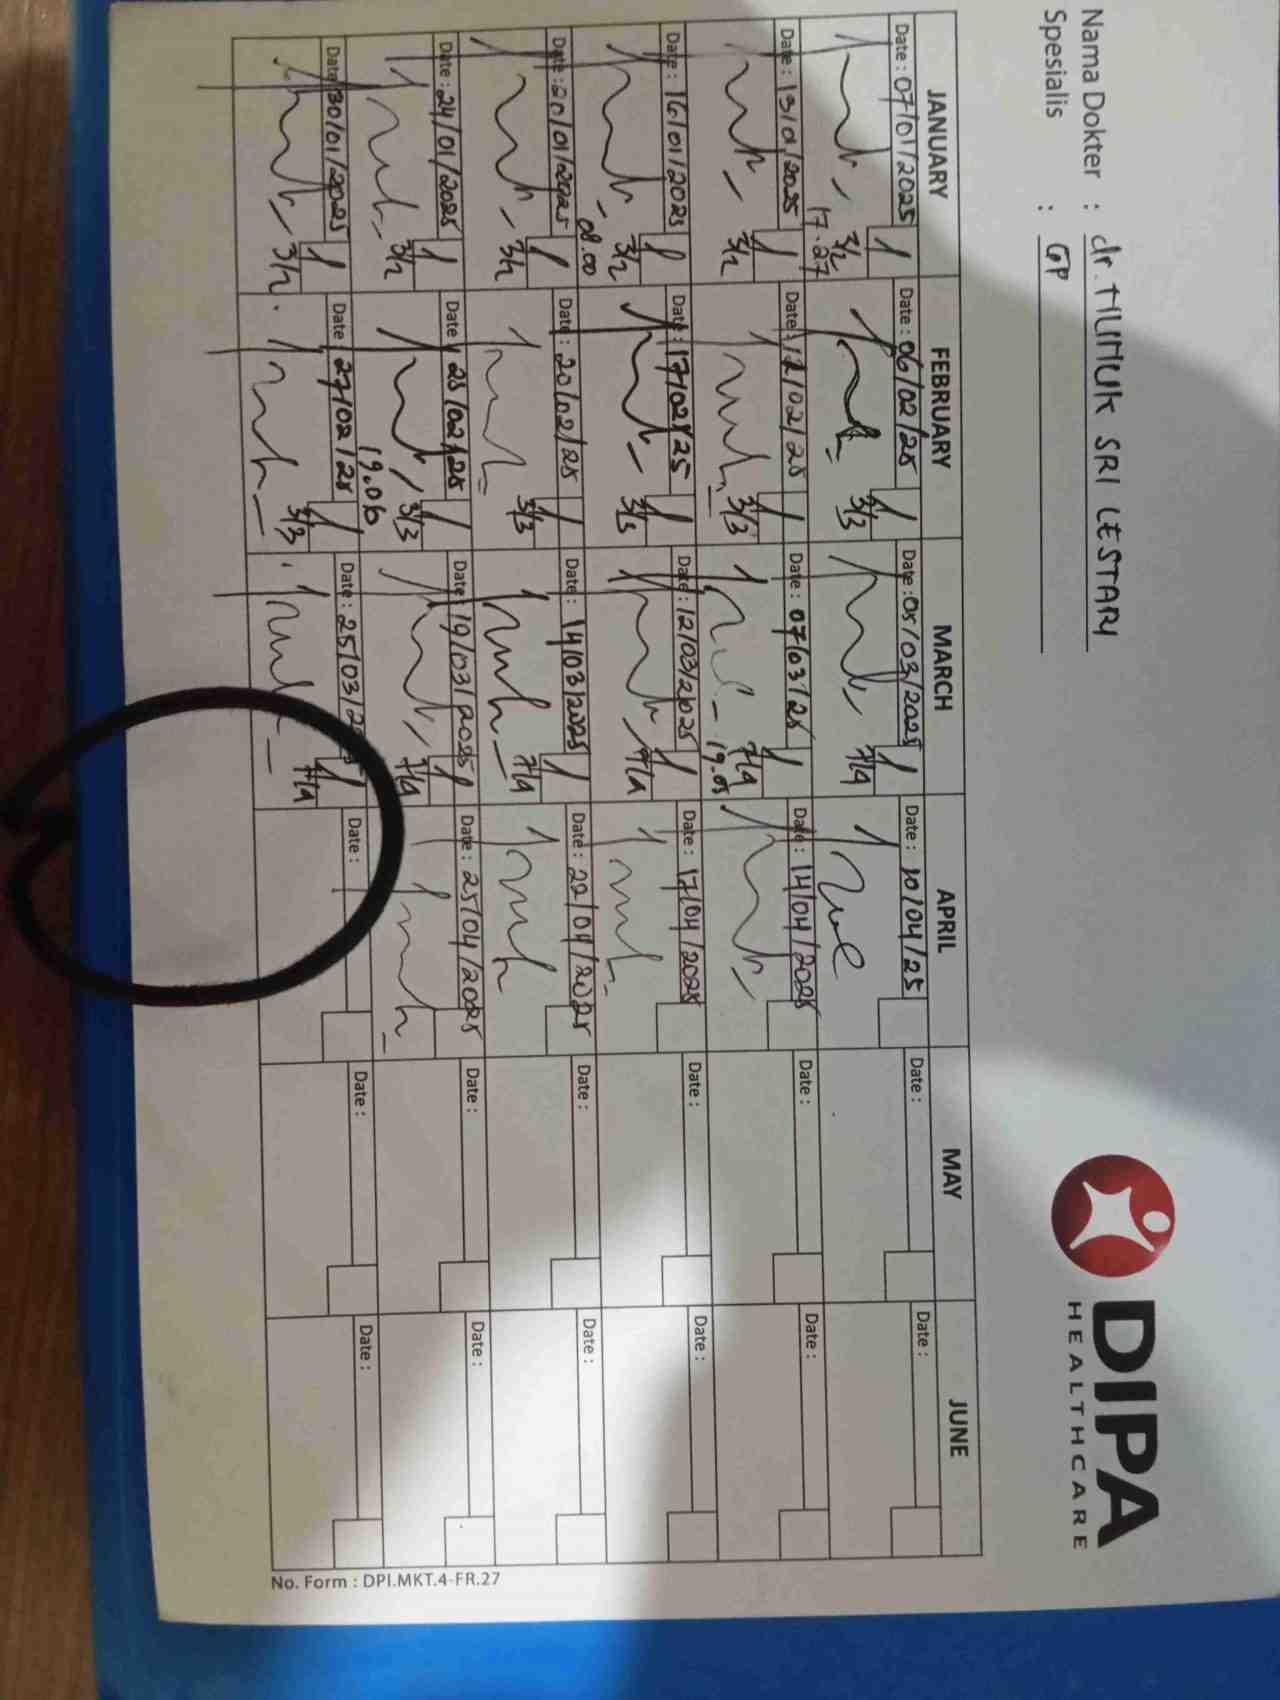 DIPA
HEALTHCARE
Nama Dokter : dr. TILMUK SRI LESTARI
Spesialis : GP
JANUARY FEBRUARY MARCH APRIL MAY JUNE
Date : 07/01/2025 Date : 06/02/25 Date : 05/03/2025 Date : 10/04/25 Date : Date :
3/2 3/3 7/4
17.27
Date : 13/01/2025 Date : 12/02/25 Date : 07/03/25 Date : 14/04/2025 Date : Date :
3/2 3/3 7/4
19.05
Date : 16/01/2025 Date : 17/02/25 Date : 12/03/2025 Date : 17/04/2025 Date : Date :
3/2 3/3 7/4
08.00
Date : 20/01/2025 Date : 20/02/25 Date : 14/03/2025 Date : 22/04/2025 Date : Date :
3/2 3/3 7/4
Date : 24/01/2025 Date : 25/02/25 Date : 19/03/2025 Date : 25/04/2025 Date : Date :
3/2 3/3 7/4
19.06
Date : 30/01/2025 Date : 27/02/25 Date : 25/03/2025 Date : Date : Date :
3/2. 3/3 7/4
No. Form : DPI.MKT.4-FR.27